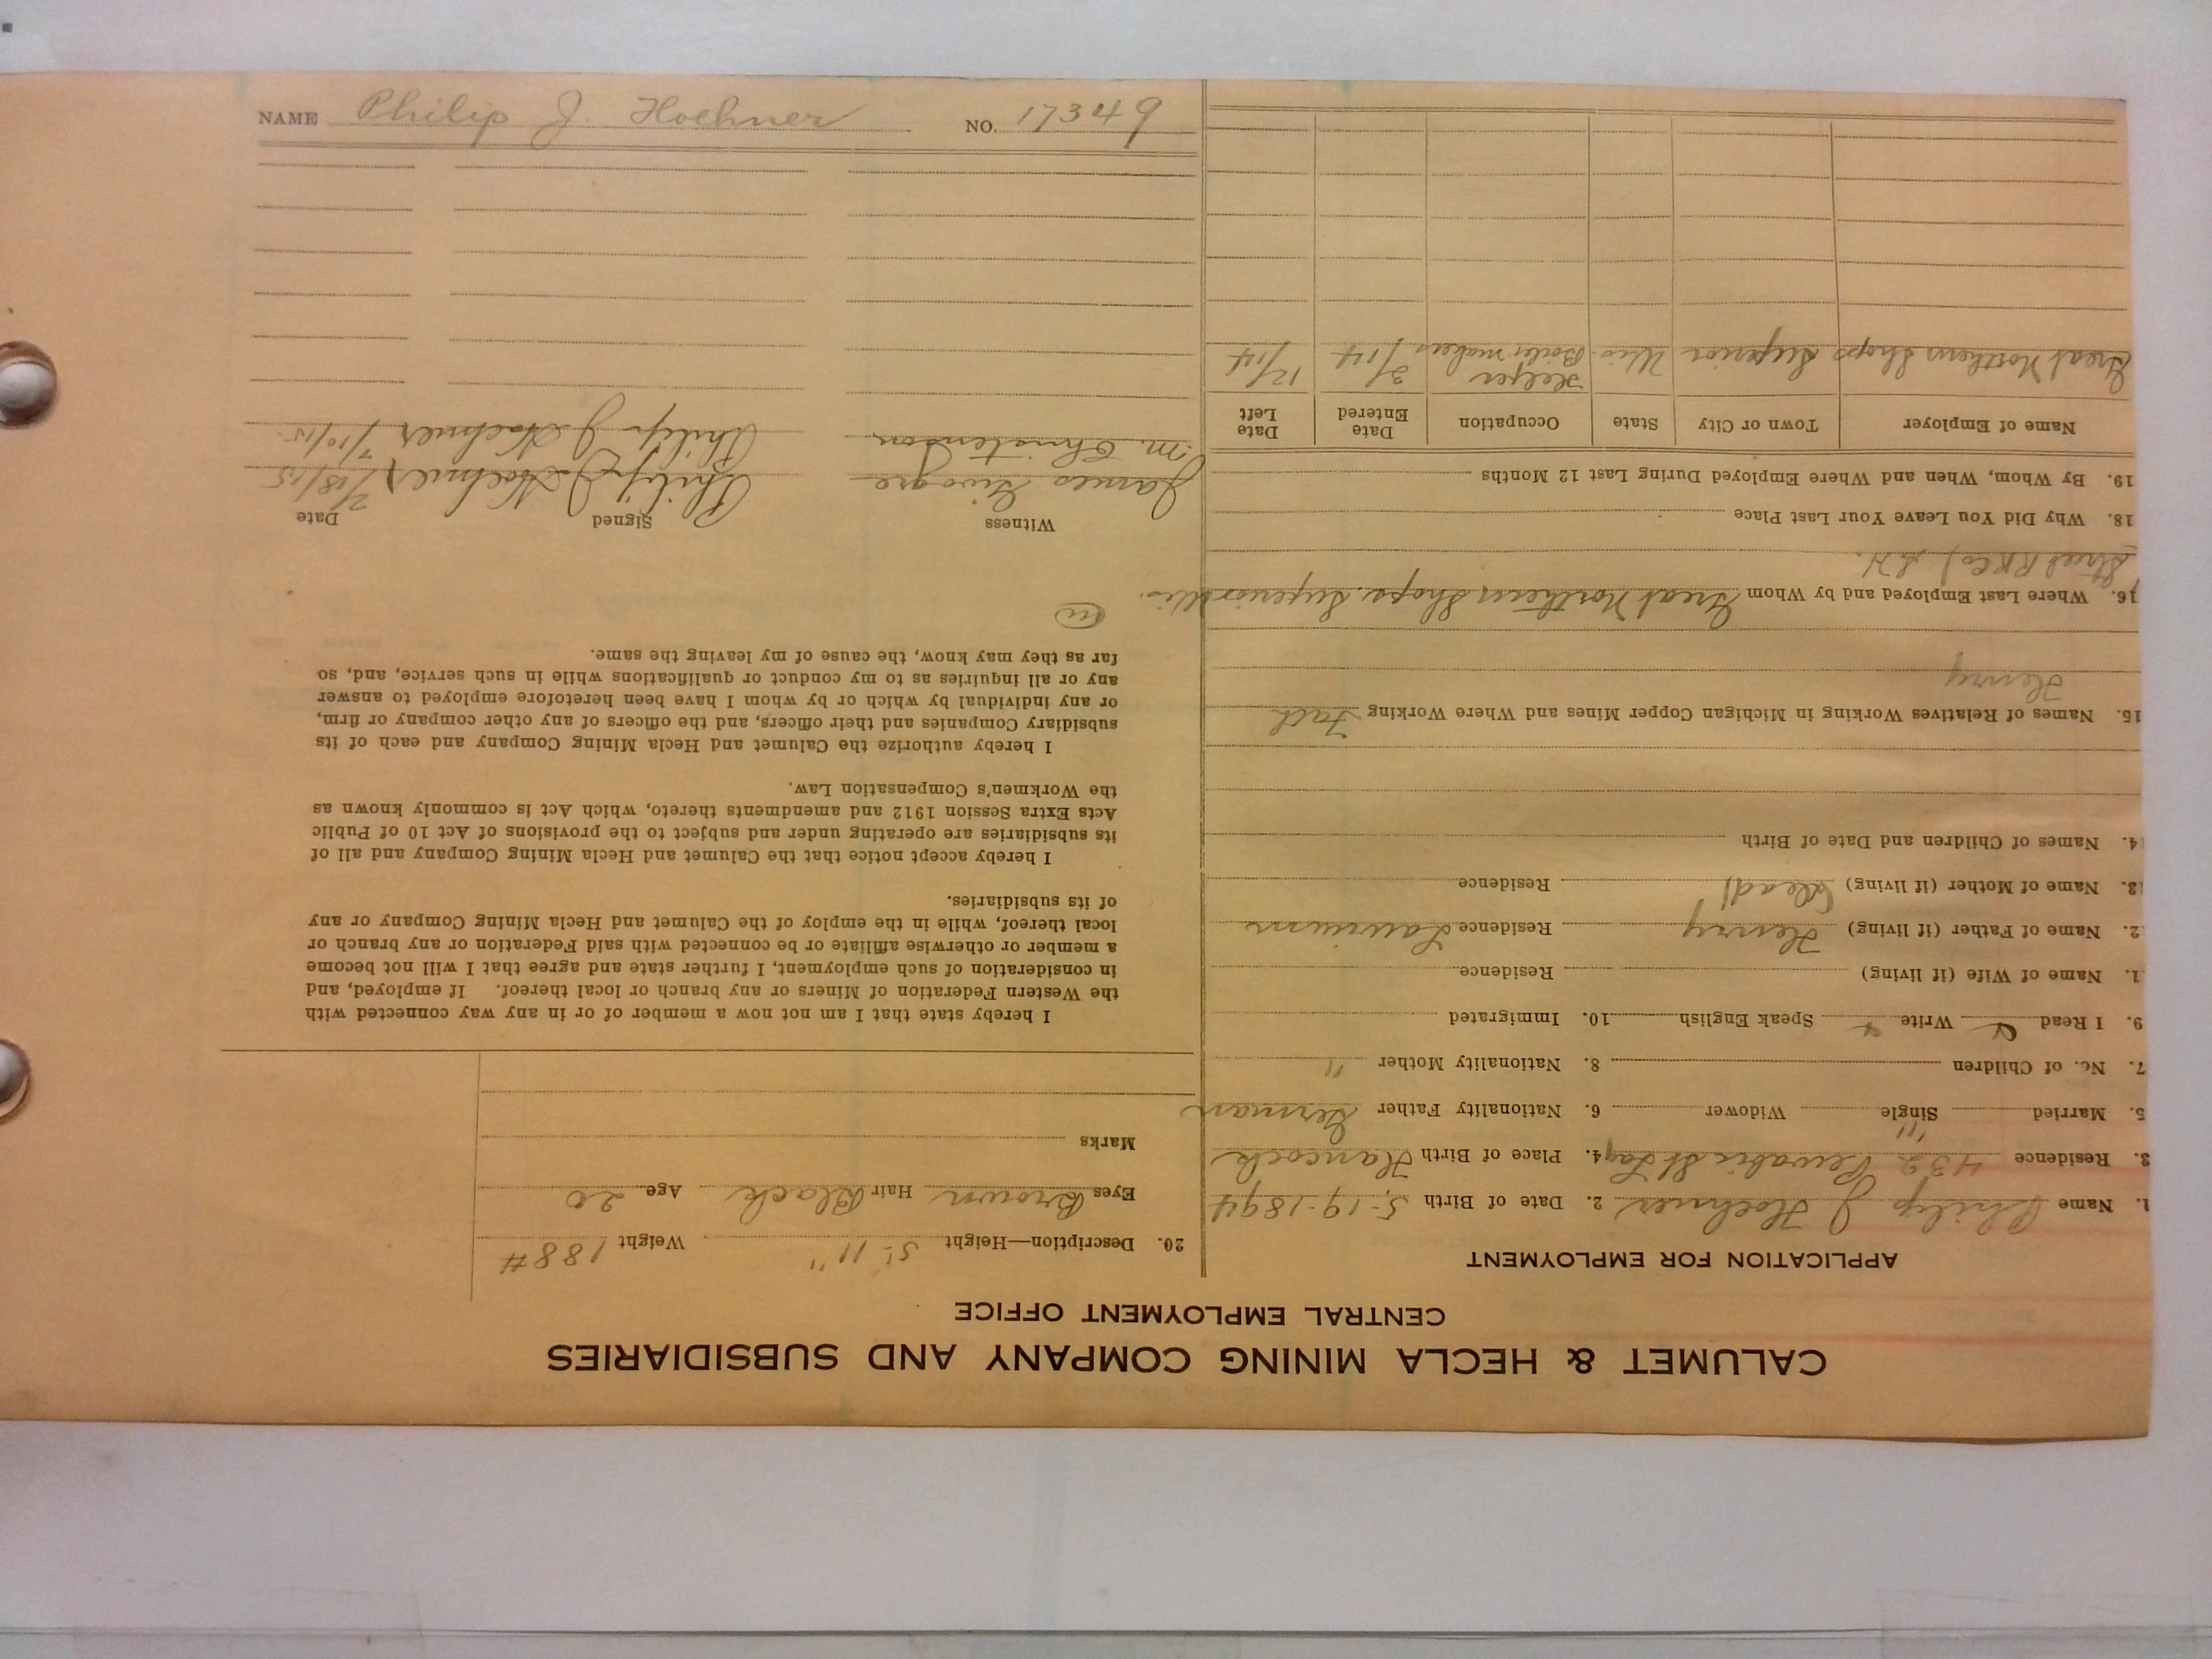 CALUMET & HECLA MINING COMPANY AND SUBSIDIARIES
CENTRAL EMPLOYMENT OFFICE
APPLICATION FOR EMPLOYMENT
1. Name Philip J Hoehner 2. Date of Birth 5-19-1894
3. Residence 432 Pewabic St 4. Place of Birth Hancock
5. Married Single " Widower 6. Nationality Father German
7. No. of Children 8. Nationality Mother "
9. I Read Write Speak English 10. Immigrated
1. Name of Wife (if living) Residence
2. Name of Father (if living) Henry Residence Laurium
3. Name of Mother (if living) (dead) Residence
4. Names of Children and Date of Birth
15. Names of Relatives Working in Michigan Copper Mines and Where Working
Henry
16. Where Last Employed and by Whom Great Northern Shops. Superior Wis.
18. Why Did You Leave Your Last Place
19. By Whom, When and Where Employed During Last 12 Months
Name of Employer Town or City State Occupation Date Entered Date Left
Great Northern Shops Superior Wis Helper Boiler makers 3/14 12/14
20. Description—Height 5' 11" Weight 188#
Eyes Brown Hair Black Age 20
Marks
I hereby state that I am not now a member of or in any way connected with
the Western Federation of Miners or any branch or local thereof. If employed, and
in consideration of such employment, I further state and agree that I will not become
a member or otherwise affiliate or be connected with said Federation or any branch or
local thereof, while in the employ of the Calumet and Hecla Mining Company or any
of its subsidiaries.
I hereby accept notice that the Calumet and Hecla Mining Company and all of
its subsidiaries are operating under and subject to the provisions of Act 10 of Public
Acts Extra Session 1912 and amendments thereto, which Act is commonly known as
the Workmen's Compensation Law.
I hereby authorize the Calumet and Hecla Mining Company and each of its
subsidiary Companies and their officers, and the officers of any other company or firm,
or any individual by which or by whom I have been heretofore employed to answer
any or all inquiries as to my conduct or qualifications while in such service, and, so
far as they may know, the cause of my leaving the same.
Witness Signed Date
James Philip J Hoehner
M. Christenson Philip J Hoehner 7/10/15
NAME Philip J. Hoehner NO. 17349